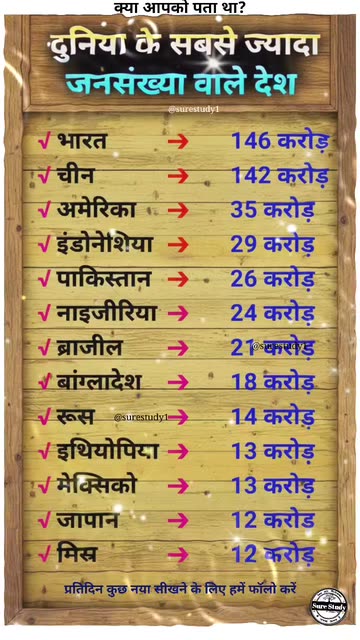 क्या आपको पता था?
दुनिया के सबसे ज्यादा
जनसंख्या वाले देश
@surestudy1
√ भारत → 146 करोड़
√ चीन → 142 करोड़
√ अमेरिका → 35 करोड़
√ इंडोनेशिया → 29 करोड़
√ पाकिस्तान → 26 करोड़
√ नाइजीरिया → 24 करोड़
√ ब्राजील → 21 करोड़
@surestudy1
√ बांग्लादेश → 18 करोड़
√ रूस @surestudy1 → 14 करोड़
√ इथियोपिया → 13 करोड़
√ मेक्सिको → 13 करोड़
√ जापान → 12 करोड
√ मिस्र → 12 करोड़
प्रतिदिन कुछ नया सीखने के लिए हमें फॉलो करें
Sure Study